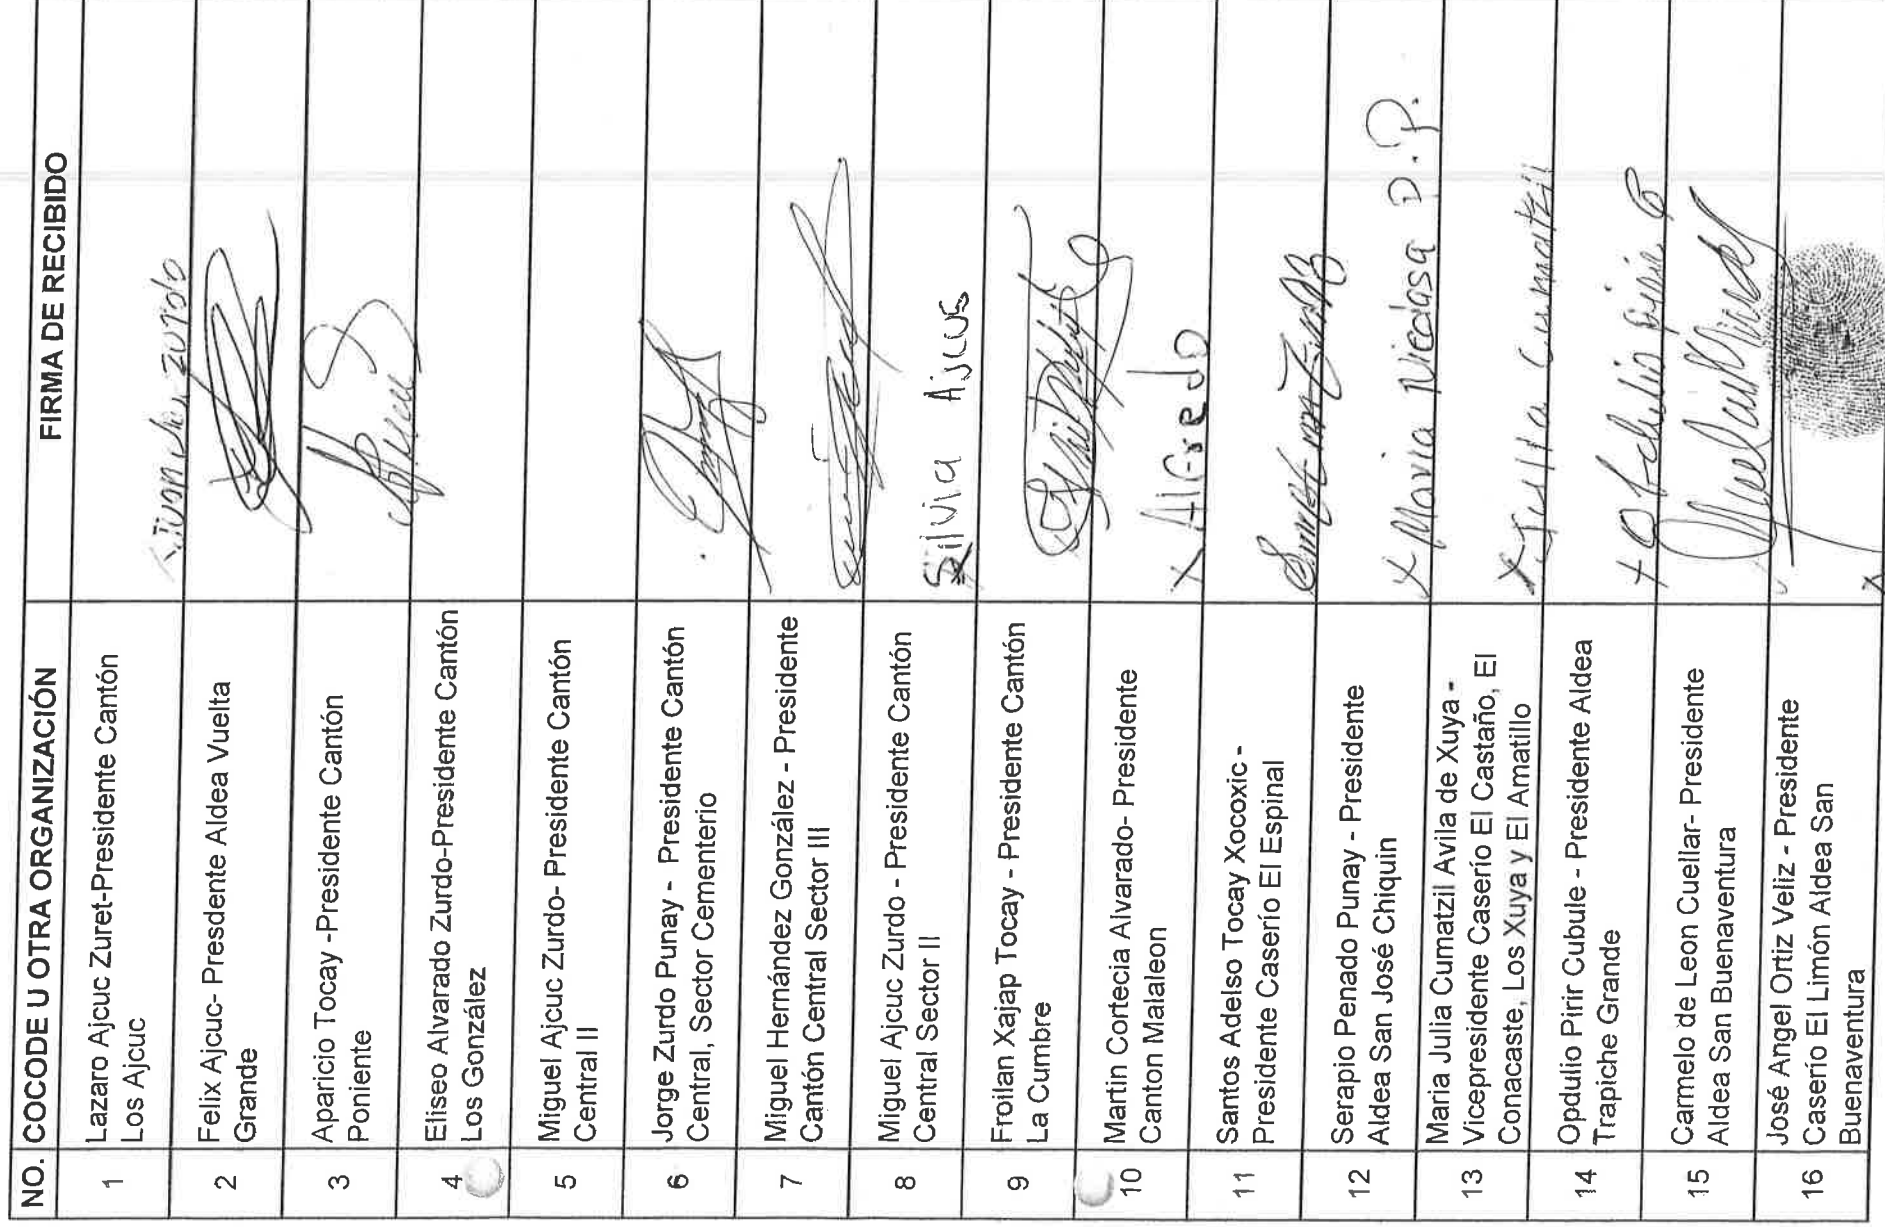 NO. COCODE U OTRA ORGANIZACIÓN FIRMA DE RECIBIDO
1 Lazaro Ajcuc Zuret-Presidente Cantón
Los Ajcuc
2 Felix Ajcuc- Presdente Aldea Vuelta
Grande
3 Aparicio Tocay -Presidente Cantón
Poniente
4 Eliseo Alvarado Zurdo-Presidente Cantón
Los González
5 Miguel Ajcuc Zurdo- Presidente Cantón
Central II
6 Jorge Zurdo Punay - Presidente Cantón
Central, Sector Cementerio
7 Miguel Hernández González - Presidente
Cantón Central Sector III
8 Miguel Ajcuc Zurdo - Presidente Cantón
Central Sector II
Silvia Ajcuc
9 Froilan Xajap Tocay - Presidente Cantón
La Cumbre
10 Martin Cortecia Alvarado- President
Canton Malaleon
X Alfredo
11 Santos Adelso Tocay Xocoxic -
Presidente Caserío El Espinal
12 Serapio Penado Punay - Presidente
Aldea San José Chiquin
X Maria Nicolasa P.P.
13 Maria Julia Cumatzil Avila de Xuya -
Vicepresidente Caserío El Castaño, El
Conacaste, Los Xuya y El Amatillo
X Julia Cumatzil
14 Opdulio Pirir Cubule - Presidente Aldea
Trapiche Grande
15 Carmelo de Leon Cuellar- Presidente
Aldea San Buenaventura
16 José Angel Ortiz Veliz - Presidente
Caserío El Limón Aldea San
Buenaventura